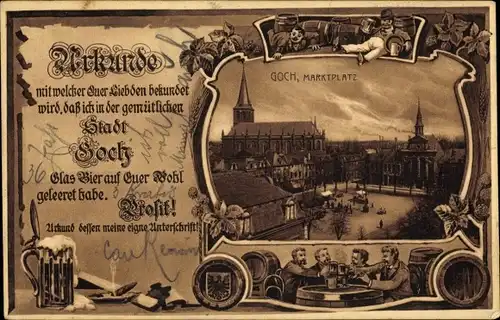 Urkunde
mit welcher Euer Liebden bekundet
wird, daß ich in der gemütlichen
Stadt
Goch
Glas Bier auf Euer Wohl
geleeret habe.
Prosit!
Urkund dessen meine eigne Unterschrift:
GOCH, MARKTPLATZ